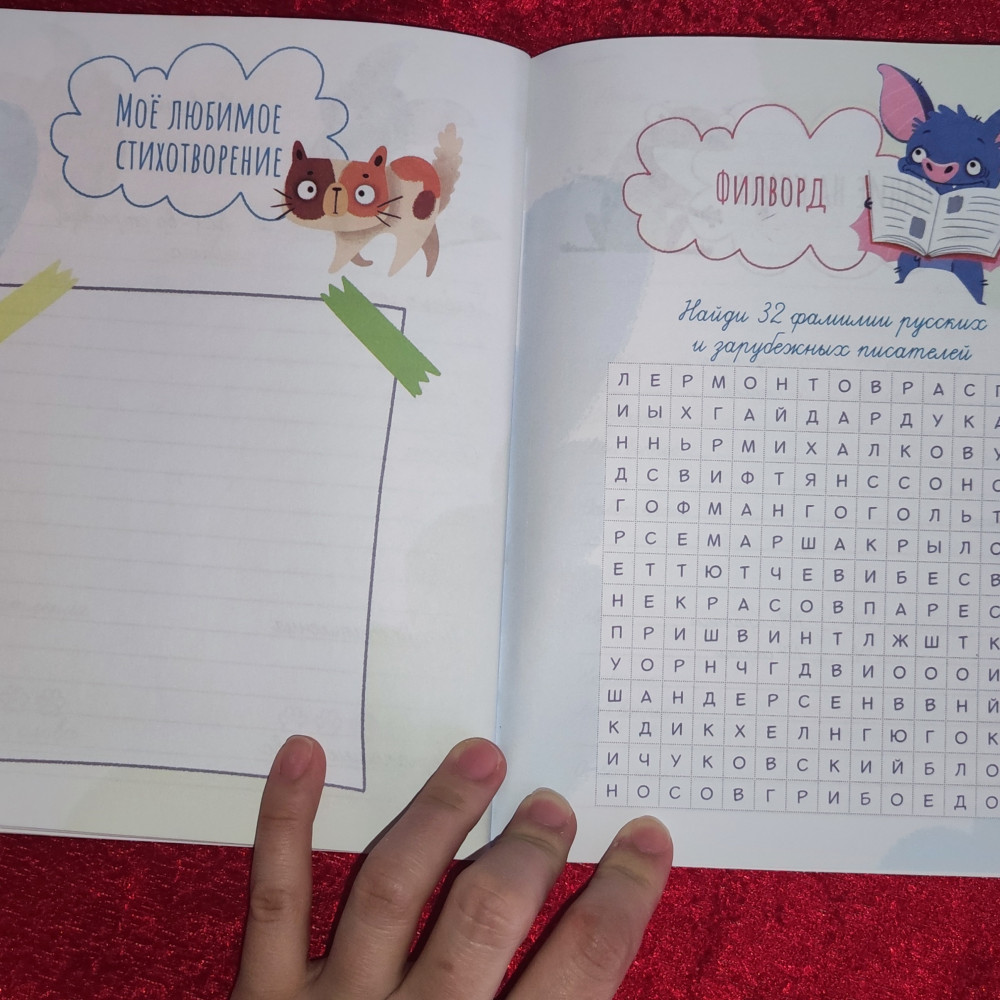 МОЁ ЛЮБИМОЕ
СТИХОТВОРЕНИЕ
ФИЛВОРД
Найди 32 фамилии русских
и зарубежных писателей
Л Е Р М О Н Т О В Р А С П
И Ы Х Г А Й Д А Р Д У К А
Н Н Ь Р М И Х А Л К О В У
Д С В И Ф Т Я Н С С О Н С
Г О Ф М А Н Г О Г О Л Ь Т
Р С Е М А Р Ш А К Р Ы Л О
Е Т Т Ю Т Ч Е В И Б Е С В
Н Е К Р А С О В П А Р Е С
П Р И Ш В И Н Т Л Ж Ш Т К
У О Р Н Ч Г Д В И О О О И
Ш А Н Д Е Р С Е Н В В Н Й
К Д И К Х Е Л Н Г Ю Г О К
И Ч У К О В С К И Й Б Л О
Н О С О В Г Р И Б О Е Д О